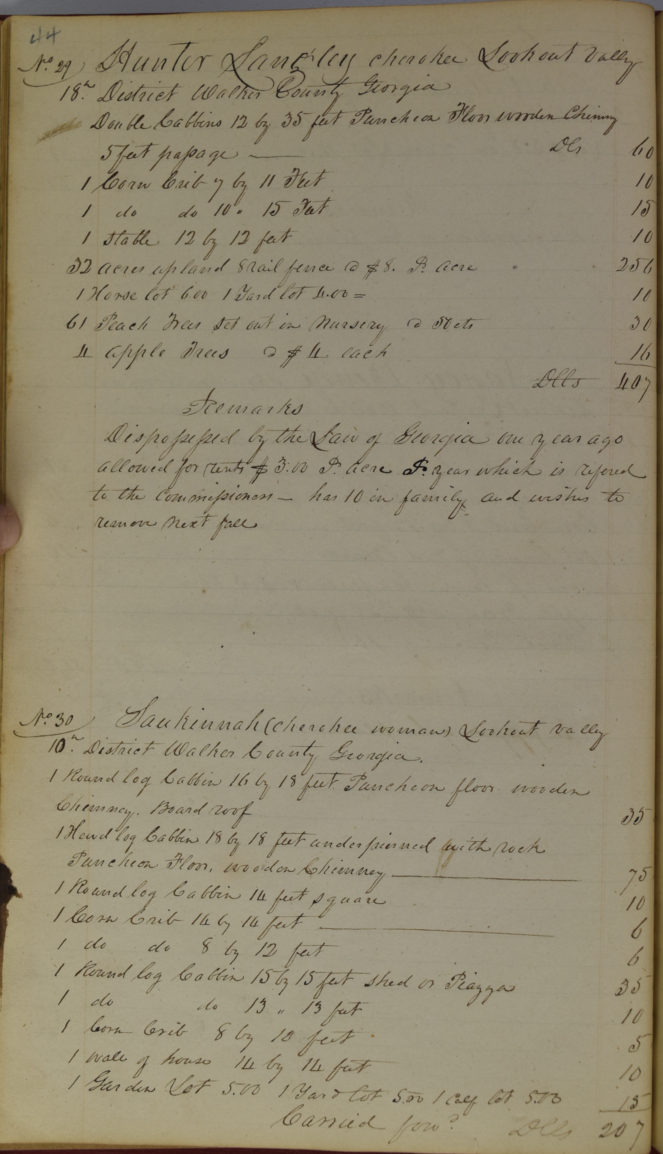 44
No. 29 Hunter Langley cherokee Lookout Valley
18th District Walker County Georgia
Double Cabbins 12 by 35 feet Puncheon Floor wooden Chimny
5 feet passage — Dls 60
1 Corn Crib 7 by 11 Feet 10
1 do do 10 " 15 Feet 15
1 Stable 12 by 12 feet 10
32 acres upland 8 rail fence @ $8. Pr. acre 256
1 Horse lot 600 1 Yard lot 4.00 = 10
61 Peach Trees set out in Nursery @ 50cts 30
4 apple Trees @ $4 each 16
Dlls 407
Remarks
Dispossessed by the Law of Georgia one year ago
allowed for rents $3.00 Pr. acre Pr. year which is refered
to the commissioners — has 10 in family and wishes to
remove next fall
No. 30 Saukinnah (cherokee woman) Lookout valley
10th District Walker County Georgia.
1 Round log Cabbin 16 by 18 feet Puncheon floor wooden
Chimney. Board roof 35
1 Hewd log Cabbin 18 by 18 feet underpinned with rock
Puncheon Floor. wooden Chimney — 75
1 Round log Cabbin 14 feet square 10
1 Corn Crib 14 by 14 feet — 6
1 do do 8 by 12 feet 6
1 Round log Cabbin 15 by 15 feet shed or Piazza 35
1 do do 13 " 13 feet 10
1 Corn Crib 8 by 10 feet 5
1 wall of house 14 by 14 feet 10
1 Garden Lot 5.00 1 Yard lot 5.00 1 calf lot 5.00 15
Carried forwd. Dlls 207